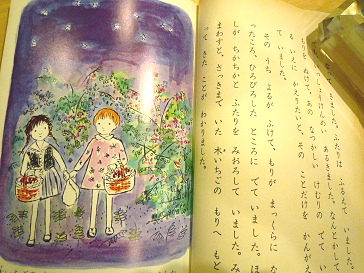 ていました。
ました。ふたりは ふるえて いました。
いっしょうけんめい あるきました。なんとかして
もりを ぬけて、あの なつかしい けむりの でて いる
いえに かえりたいと、その ことだけを かんがえ
ていました。
その うち よるが ふけて、もりが まっくらに な
ったころ、ひろびろした ところに でて いました。ほ
しが ちかちかと ふたりを みおろして いました。み
まわすと、さっきまで いた 木いちごの もりへ もど
って きた ことが わかりました。